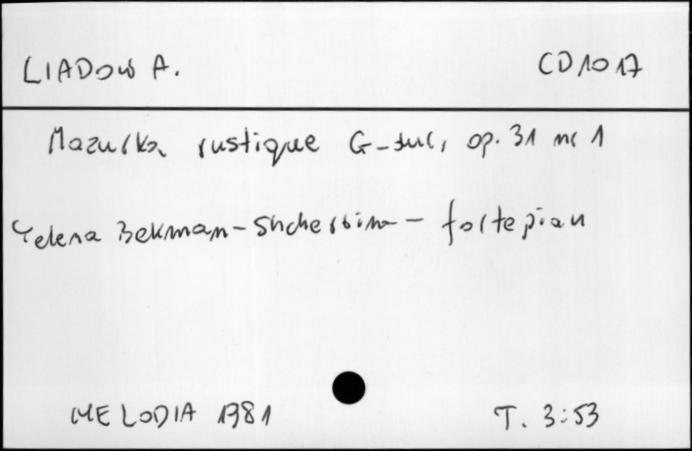 LIADOW A. CD 1017
Mazurka rustique G-dur, op. 31 nr 1
Yelena Bekman-Shcherbina - fortepian
MELODIA 1981 T. 3:53